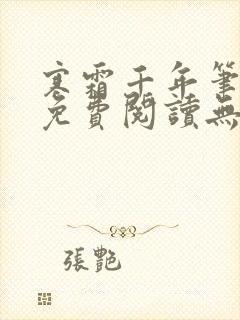 寒霜千年筆
免費閱讀無
張艷